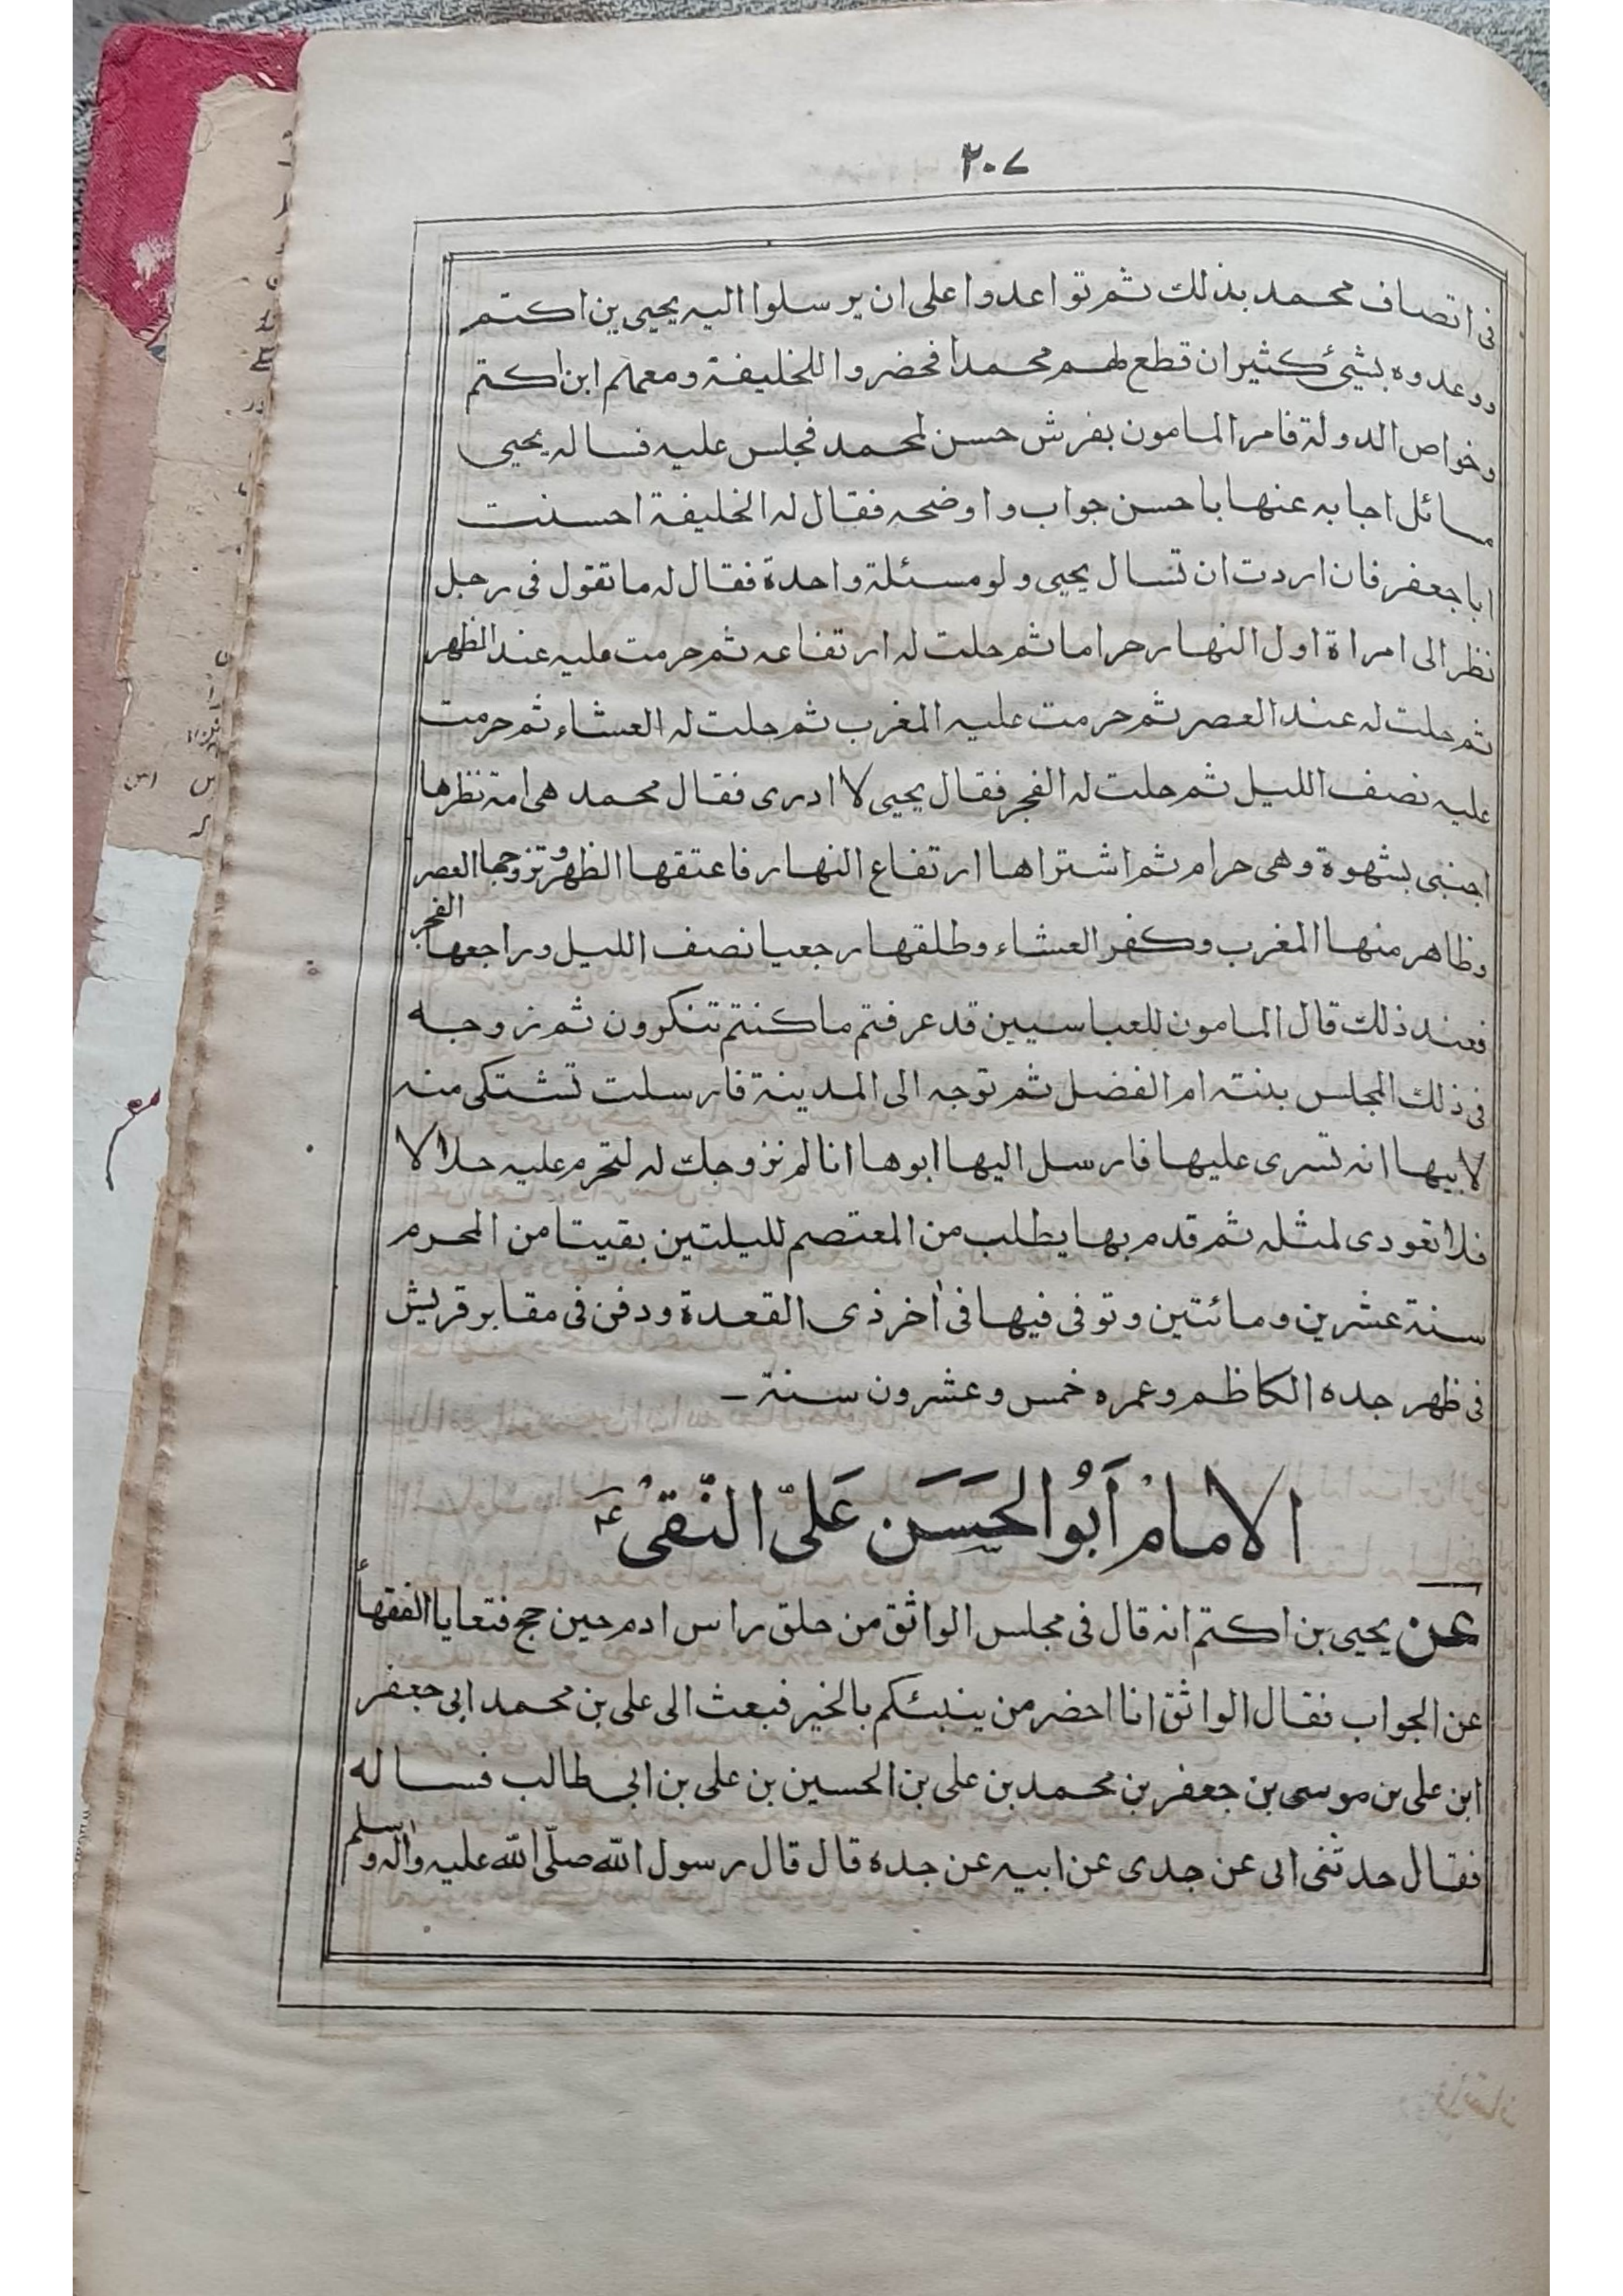 ٢٠٧
فى اتصاف محمد بذلك ثم تواعدوا على ان يرسلوا اليه يحيى بن اكتم
ووعدوه بشيئ كثيران قطع لهم محمدا فحضروا للخليفة ومعهم ابن اكتم
وخواص الدولة فامر المامون بفرش حسن لمحمد فجلس عليه فساله يحيى
مسائل اجابه عنها باحسن جواب واوضحه فقال له الخليفة احسنت
اباجعفر فان اردت ان تسال يحيى ولو مسئلة واحدة فقال له ما تقول فى رجل
نظر الى امراة اول النهار حراما ثم حلت له ارتفاعه ثم حرمت عليه عند الظهر
ثم حلت له عند العصر ثم حرمت عليه المغرب ثم حلت له العشاء ثم حرمت
عليه نصف الليل ثم حلت له الفجر فقال يحيى لا ادرى فقال محمد هى امة نظرها
اجنبى بشهوة وهى حرام ثم اشتراها ارتفاع النهار فاعتقها الظهر وتزوجها العصر
وظاهر منها المغرب وكفر العشاء وطلقها رجعيا نصف الليل وراجعها الفجر
فعند ذلك قال المامون للعباسيين قد عرفتم ما كنتم تنكرون ثم زوجه
فى ذلك المجلس بنته ام الفضل ثم توجه الى المدينة فارسلت تشتكى منه
لابيها انه تسرى عليها فارسل اليها ابوها انا لم نزوجك له لتحرم عليه حلالا
فلا تعودى لمثله ثم قدم بها يطلب من المعتصم لليلتين بقيتا من المحرم
سنة عشرين ومائتين وتوفى فيها فى اٰخر ذى القعدة ودفن فى مقابر قريش
فى ظهر جده الكاظم وعمره خمس وعشرون سنة ـ
الامامْ اَبُو الحَسَن عَلىّ النّقىْ ؑ
عن يحيى بن اكتم انه قال فى مجلس الواثق من حلق راس ادم حين حج فتعايا الفقهأ
عن الجواب فقال الواثق انا احضر من ينبئكم بالخير فبعث الى على بن محمد ابى جعفر
ابن على بن موسى بن جعفر بن محمد بن على بن الحسين بن على بن ابى طالب فساله
فقال حدثنى ابى عن جدى عن ابيه عن جده قال قال رسول اللّٰه صلّى اللّٰه عليه واٰله وسلم